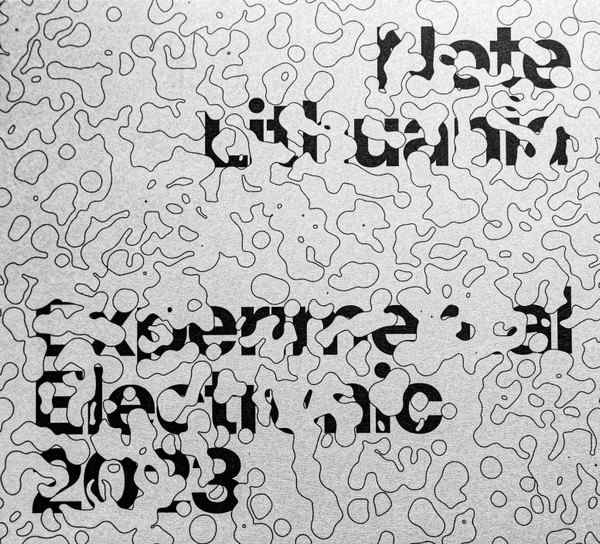 Note
Lithuania
Experimental
Electronic
2023